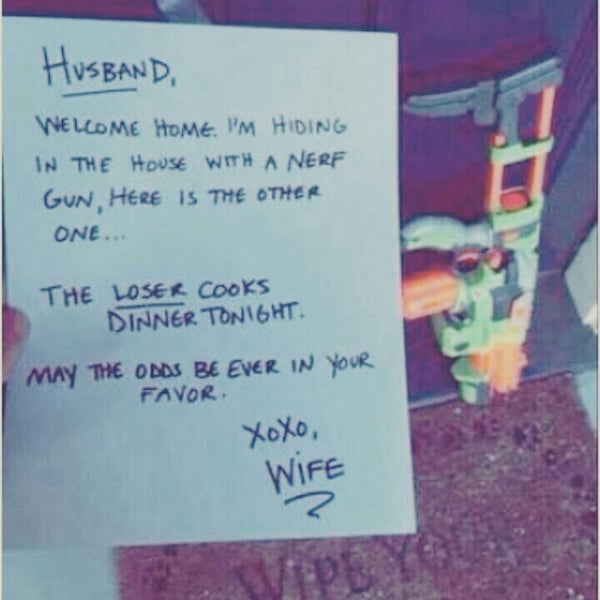 HUSBAND,
WELCOME HOME. I'M HIDING
IN THE HOUSE WITH A NERF
GUN, HERE IS THE OTHER
ONE...
THE LOSER COOKS
DINNER TONIGHT.
MAY THE ODDS BE EVER IN YOUR
FAVOR.
XOXO,
WIFE
WIPE YOUR